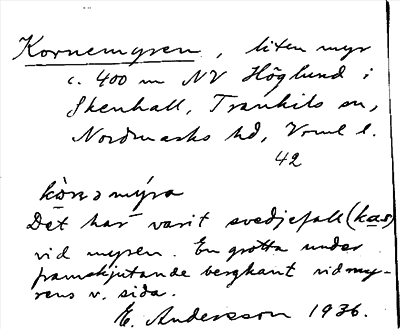 Kornemyren, liten myr
c. 400 m NV Höglund i
Skenhall, Trankils sn,
Nordmarks hd, Vrml l.
42
kòrnəmýra
Det har varit svedjefall (kas)
vid myren. En grotta under
framskjutande bergkant vid my-
rens v. sida.
E. Andersson 1936.